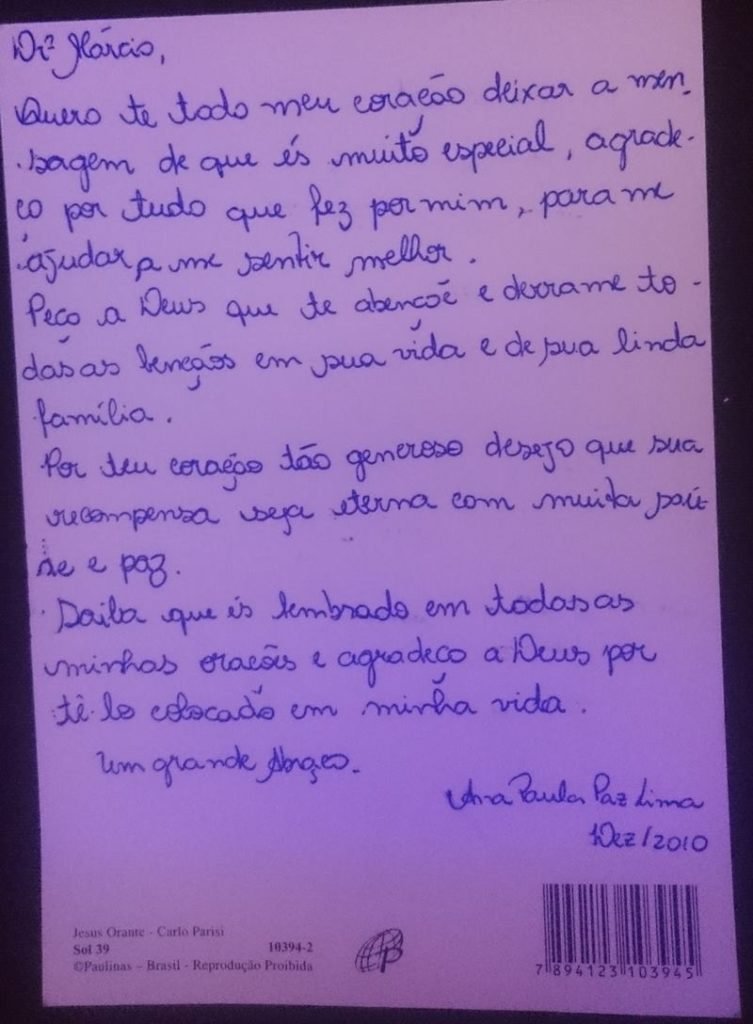 Drº Márcio,
Quero te todo meu coração deixar a men-
sagem de que és muito especial, agrade-
ço por tudo que fez por mim, para me
ajudar a me sentir melhor.
Peço a Deus que te abençoé e derrame to-
das as bençãos em sua vida e de sua linda
família.
Por teu coração tão generoso desejo que sua
recompensa seja eterna com muita saú-
de e paz.
Saiba que és lembrado em todas as
minhas orações e agradeço a Deus por
tê-lo colocado em minha vida.
Um grande Abraço.
Ana Paula Paz Lima
Dez/2010
Jesus Orante - Carlo Parisi
Sol 39 10394-2
©Paulinas – Brasil - Reprodução Proibida
7 894123 103945